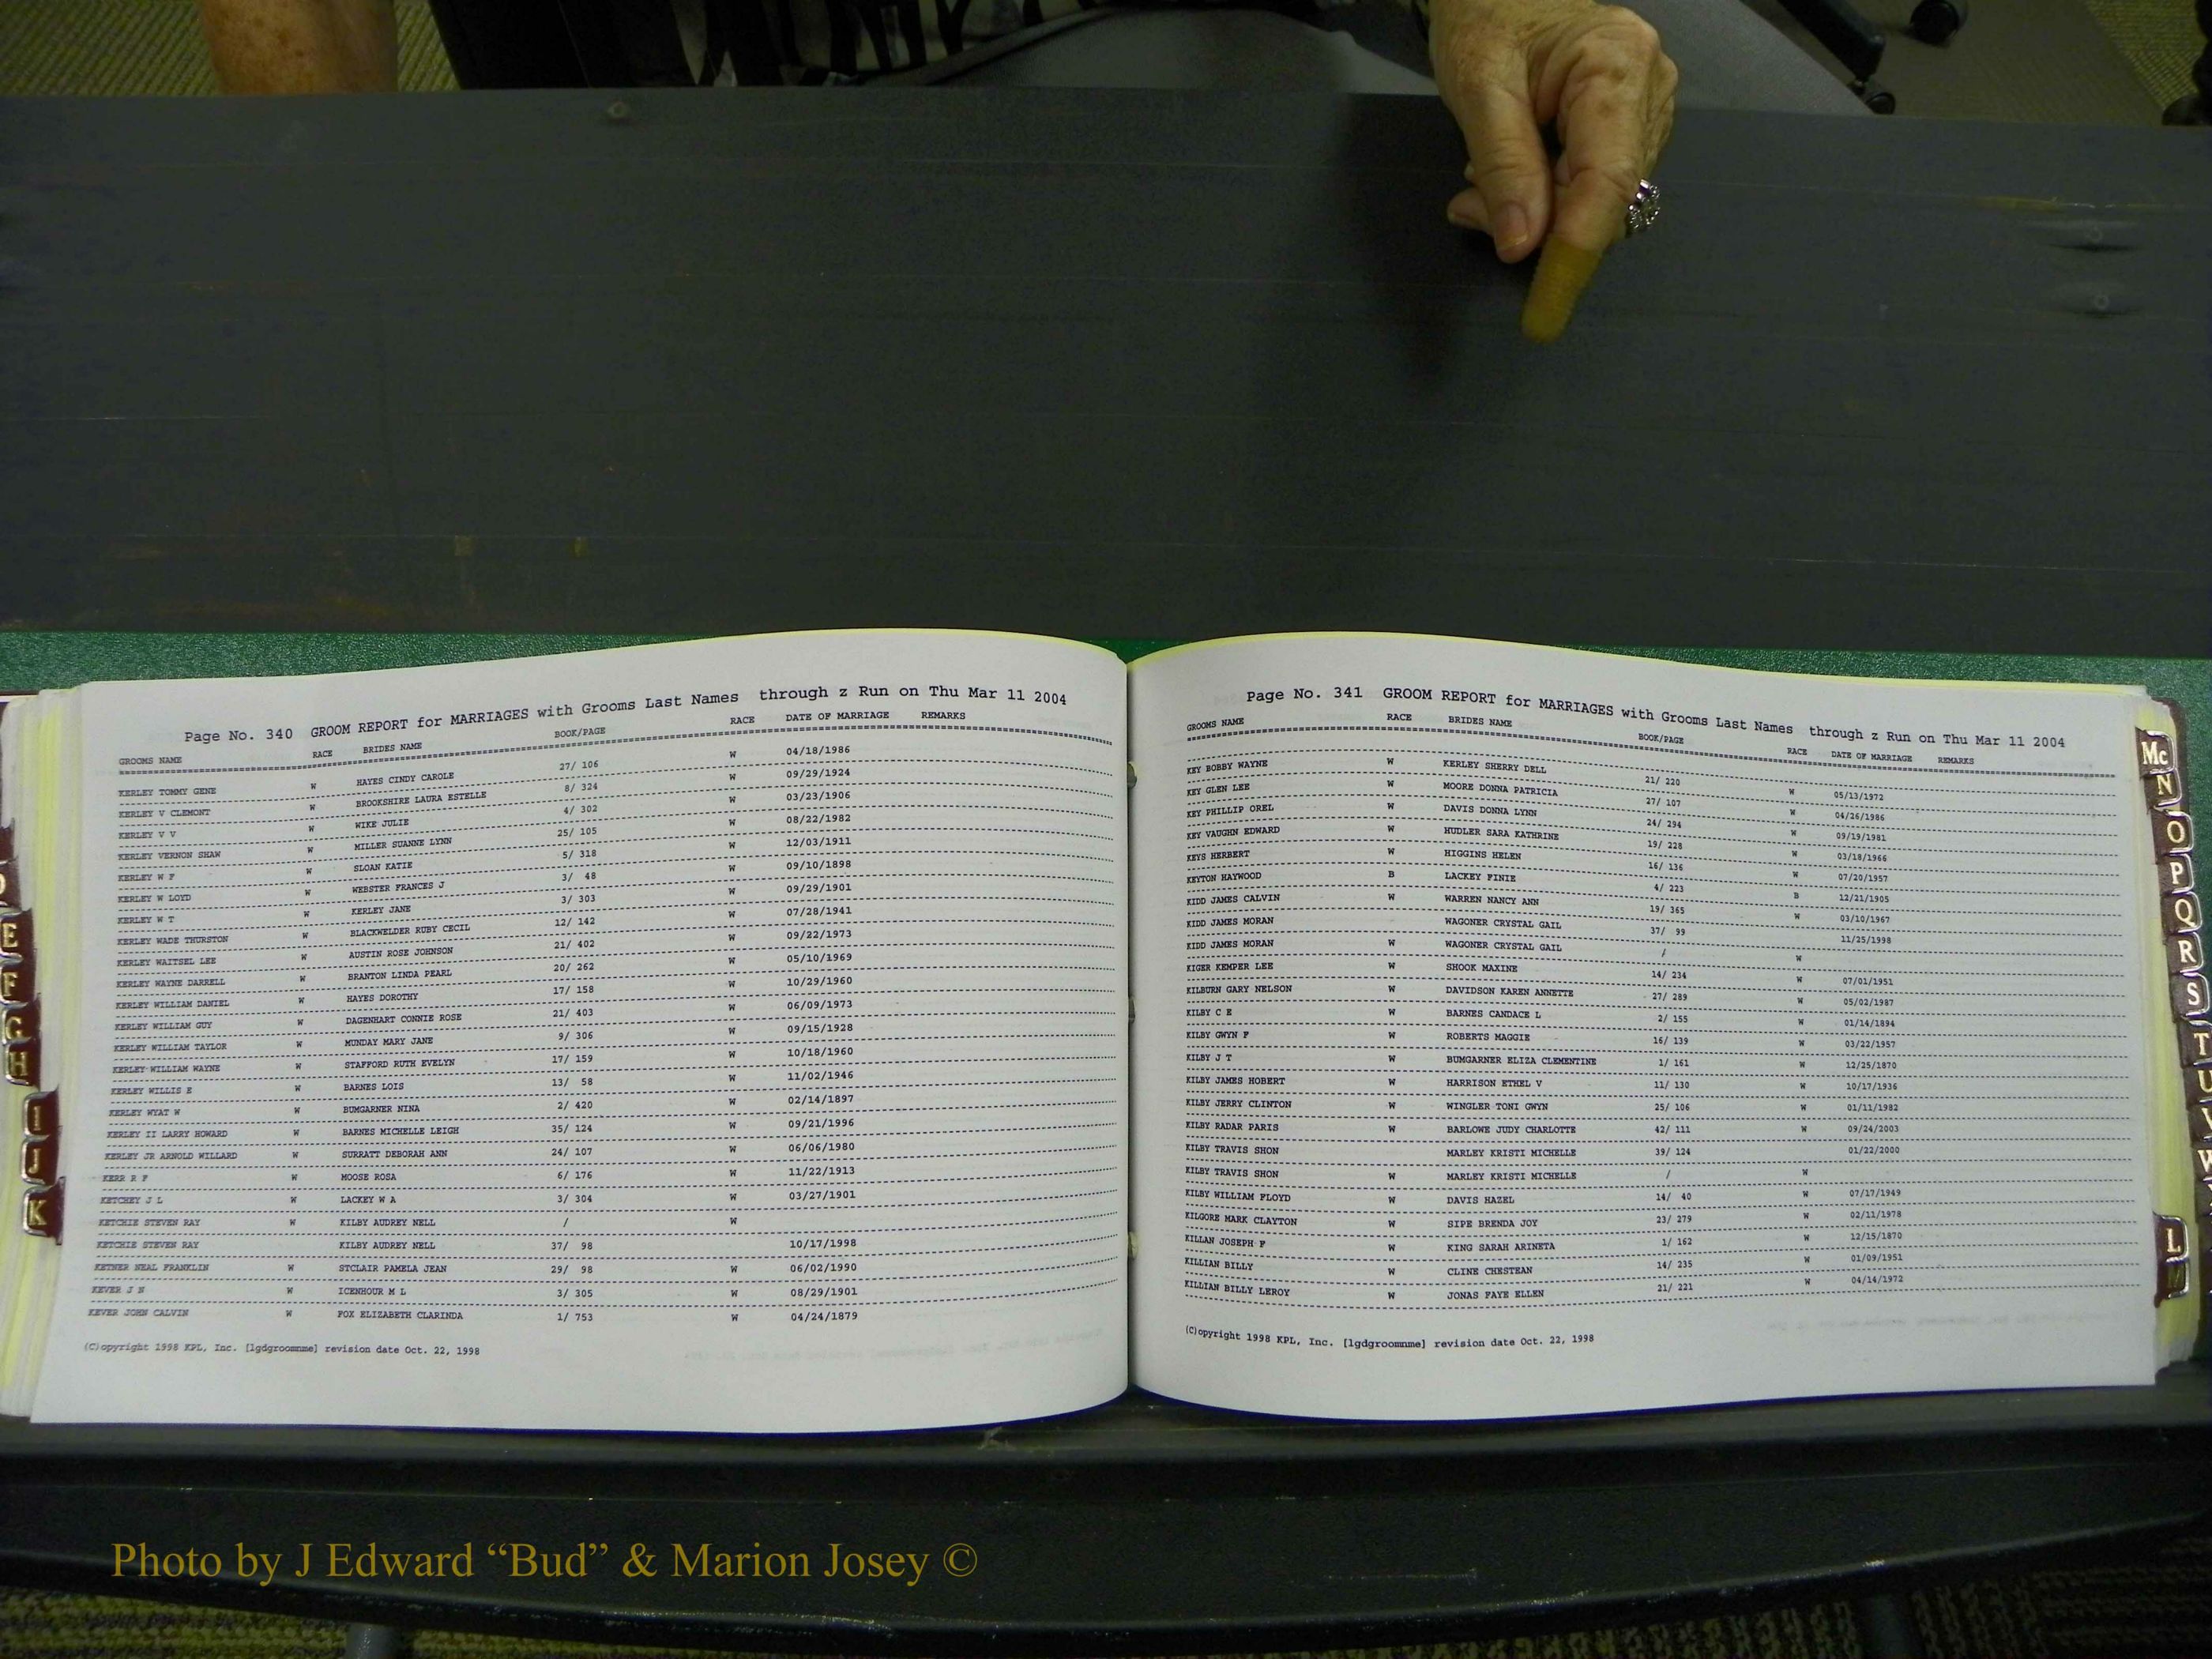 Page No. 340 GROOM REPORT for MARRIAGES with Grooms Last Names through z Run on Thu Mar 11 2004
GROOMS NAME RACE BRIDES NAME BOOK/PAGE RACE DATE OF MARRIAGE REMARKS
KERLEY TOMMY GENE W HAYES CINDY CAROLE 27/ 106 W 04/18/1986
KERLEY V CLEMONT W BROOKSHIRE LAURA ESTELLE 8/ 324 W 09/29/1924
KERLEY V V W WIKE JULIE 4/ 302 W 03/23/1906
KERLEY VERNON SHAW W MILLER SUANNE LYNN 25/ 105 W 08/22/1982
KERLEY W F W SLOAN KATIE 5/ 318 W 12/03/1911
KERLEY W LOYD W WEBSTER FRANCES J 3/ 48 W 09/10/1898
KERLEY W T W KERLEY JANE 3/ 303 W 09/29/1901
KERLEY WADE THURSTON W BLACKWELDER RUBY CECIL 12/ 142 W 07/28/1941
KERLEY WAITSEL LEE W AUSTIN ROSE JOHNSON 21/ 402 W 09/22/1973
KERLEY WAYNE DARRELL W BRANTON LINDA PEARL 20/ 262 W 05/10/1969
KERLEY WILLIAM DANIEL W HAYES DOROTHY 17/ 158 W 10/29/1960
KERLEY WILLIAM GUY W DAGENHART CONNIE ROSE 21/ 403 W 06/09/1973
KERLEY WILLIAM TAYLOR W MUNDAY MARY JANE 9/ 306 W 09/15/1928
KERLEY WILLIAM WAYNE W STAFFORD RUTH EVELYN 17/ 159 W 10/18/1960
KERLEY WILLIS E W BARNES LOIS 13/ 58 W 11/02/1946
KERLEY WYAT W W BUMGARNER NINA 2/ 420 W 02/14/1897
KERLEY II LARRY HOWARD W BARNES MICHELLE LEIGH 35/ 124 W 09/21/1996
KERLEY JR ARNOLD WILLARD W SURRATT DEBORAH ANN 24/ 107 W 06/06/1980
KERR R F W MOOSE ROSA 6/ 176 W 11/22/1913
KETCHEY J L W LACKEY W A 3/ 304 W 03/27/1901
KETCHIE STEVEN RAY W KILBY AUDREY NELL / W
KETCHIE STEVEN RAY KILBY AUDREY NELL 37/ 98 10/17/1998
KETNER NEAL FRANKLIN W STCLAIR PAMELA JEAN 29/ 98 W 06/02/1990
KEVER J N W ICENHOUR M L 3/ 305 W 08/29/1901
KEVER JOHN CALVIN W FOX ELIZABETH CLARINDA 1/ 753 W 04/24/1879
(C)opyright 1998 KPL, Inc. [lgdgroomnme] revision date Oct. 22, 1998
Page No. 341 GROOM REPORT for MARRIAGES with Grooms Last Names through z Run on Thu Mar 11 2004
GROOMS NAME RACE BRIDES NAME BOOK/PAGE RACE DATE OF MARRIAGE REMARKS
KEY BOBBY WAYNE W KERLEY SHERRY DELL 21/ 220 W 05/13/1972
KEY GLEN LEE W MOORE DONNA PATRICIA 27/ 107 W 04/26/1986
KEY PHILLIP OREL W DAVIS DONNA LYNN 24/ 294 W 09/19/1981
KEY VAUGHN EDWARD W HUDLER SARA KATHRINE 19/ 228 W 03/18/1966
KEYS HERBERT W HIGGINS HELEN 16/ 136 W 07/20/1957
KEYTON HAYWOOD B LACKEY FINIE 4/ 223 B 12/21/1905
KIDD JAMES CALVIN W WARREN NANCY ANN 19/ 365 W 03/10/1967
KIDD JAMES MORAN WAGONER CRYSTAL GAIL 37/ 99 11/25/1998
KIDD JAMES MORAN W WAGONER CRYSTAL GAIL / W
KIGER KEMPER LEE W SHOOK MAXINE 14/ 234 W 07/01/1951
KILBURN GARY NELSON W DAVIDSON KAREN ANNETTE 27/ 289 W 05/02/1987
KILBY C E W BARNES CANDACE L 2/ 155 W 01/14/1894
KILBY GWYN F W ROBERTS MAGGIE 16/ 139 W 03/22/1957
KILBY J T W BUMGARNER ELIZA CLEMENTINE 1/ 161 W 12/25/1870
KILBY JAMES HOBERT W HARRISON ETHEL V 11/ 130 W 10/17/1936
KILBY JERRY CLINTON W WINGLER TONI GWYN 25/ 106 W 01/11/1982
KILBY RADAR PARIS W BARLOWE JUDY CHARLOTTE 42/ 111 W 09/24/2003
KILBY TRAVIS SHON MARLEY KRISTI MICHELLE 39/ 124 01/22/2000
KILBY TRAVIS SHON W MARLEY KRISTI MICHELLE / W
KILBY WILLIAM FLOYD W DAVIS HAZEL 14/ 40 W 07/17/1949
KILGORE MARK CLAYTON W SIPE BRENDA JOY 23/ 279 W 02/11/1978
KILLAN JOSEPH F W KING SARAH ARINETA 1/ 162 W 12/15/1870
KILLIAN BILLY W CLINE CHESTEAN 14/ 235 W 01/09/1951
KILLIAN BILLY LEROY W JONAS FAYE ELLEN 21/ 221 W 04/14/1972
(C)opyright 1998 KPL, Inc. [lgdgroomnme] revision date Oct. 22, 1998
E
F
G
H
I
J
K
Mc
N
O
P
Q
R
S
T
U
V
W
L
M
Photo by J Edward “Bud” & Marion Josey ©